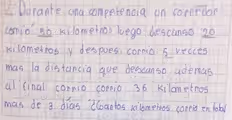 2. Durante una competencia un corredor
corrió 50 kilometros luego descanso 20
kilometros y despues corrio 5 veces
mas la distancia que descanso ademas
al final corrio corrio 36 kilometros
mas de 3 dias cuantos kilometros corrio en total